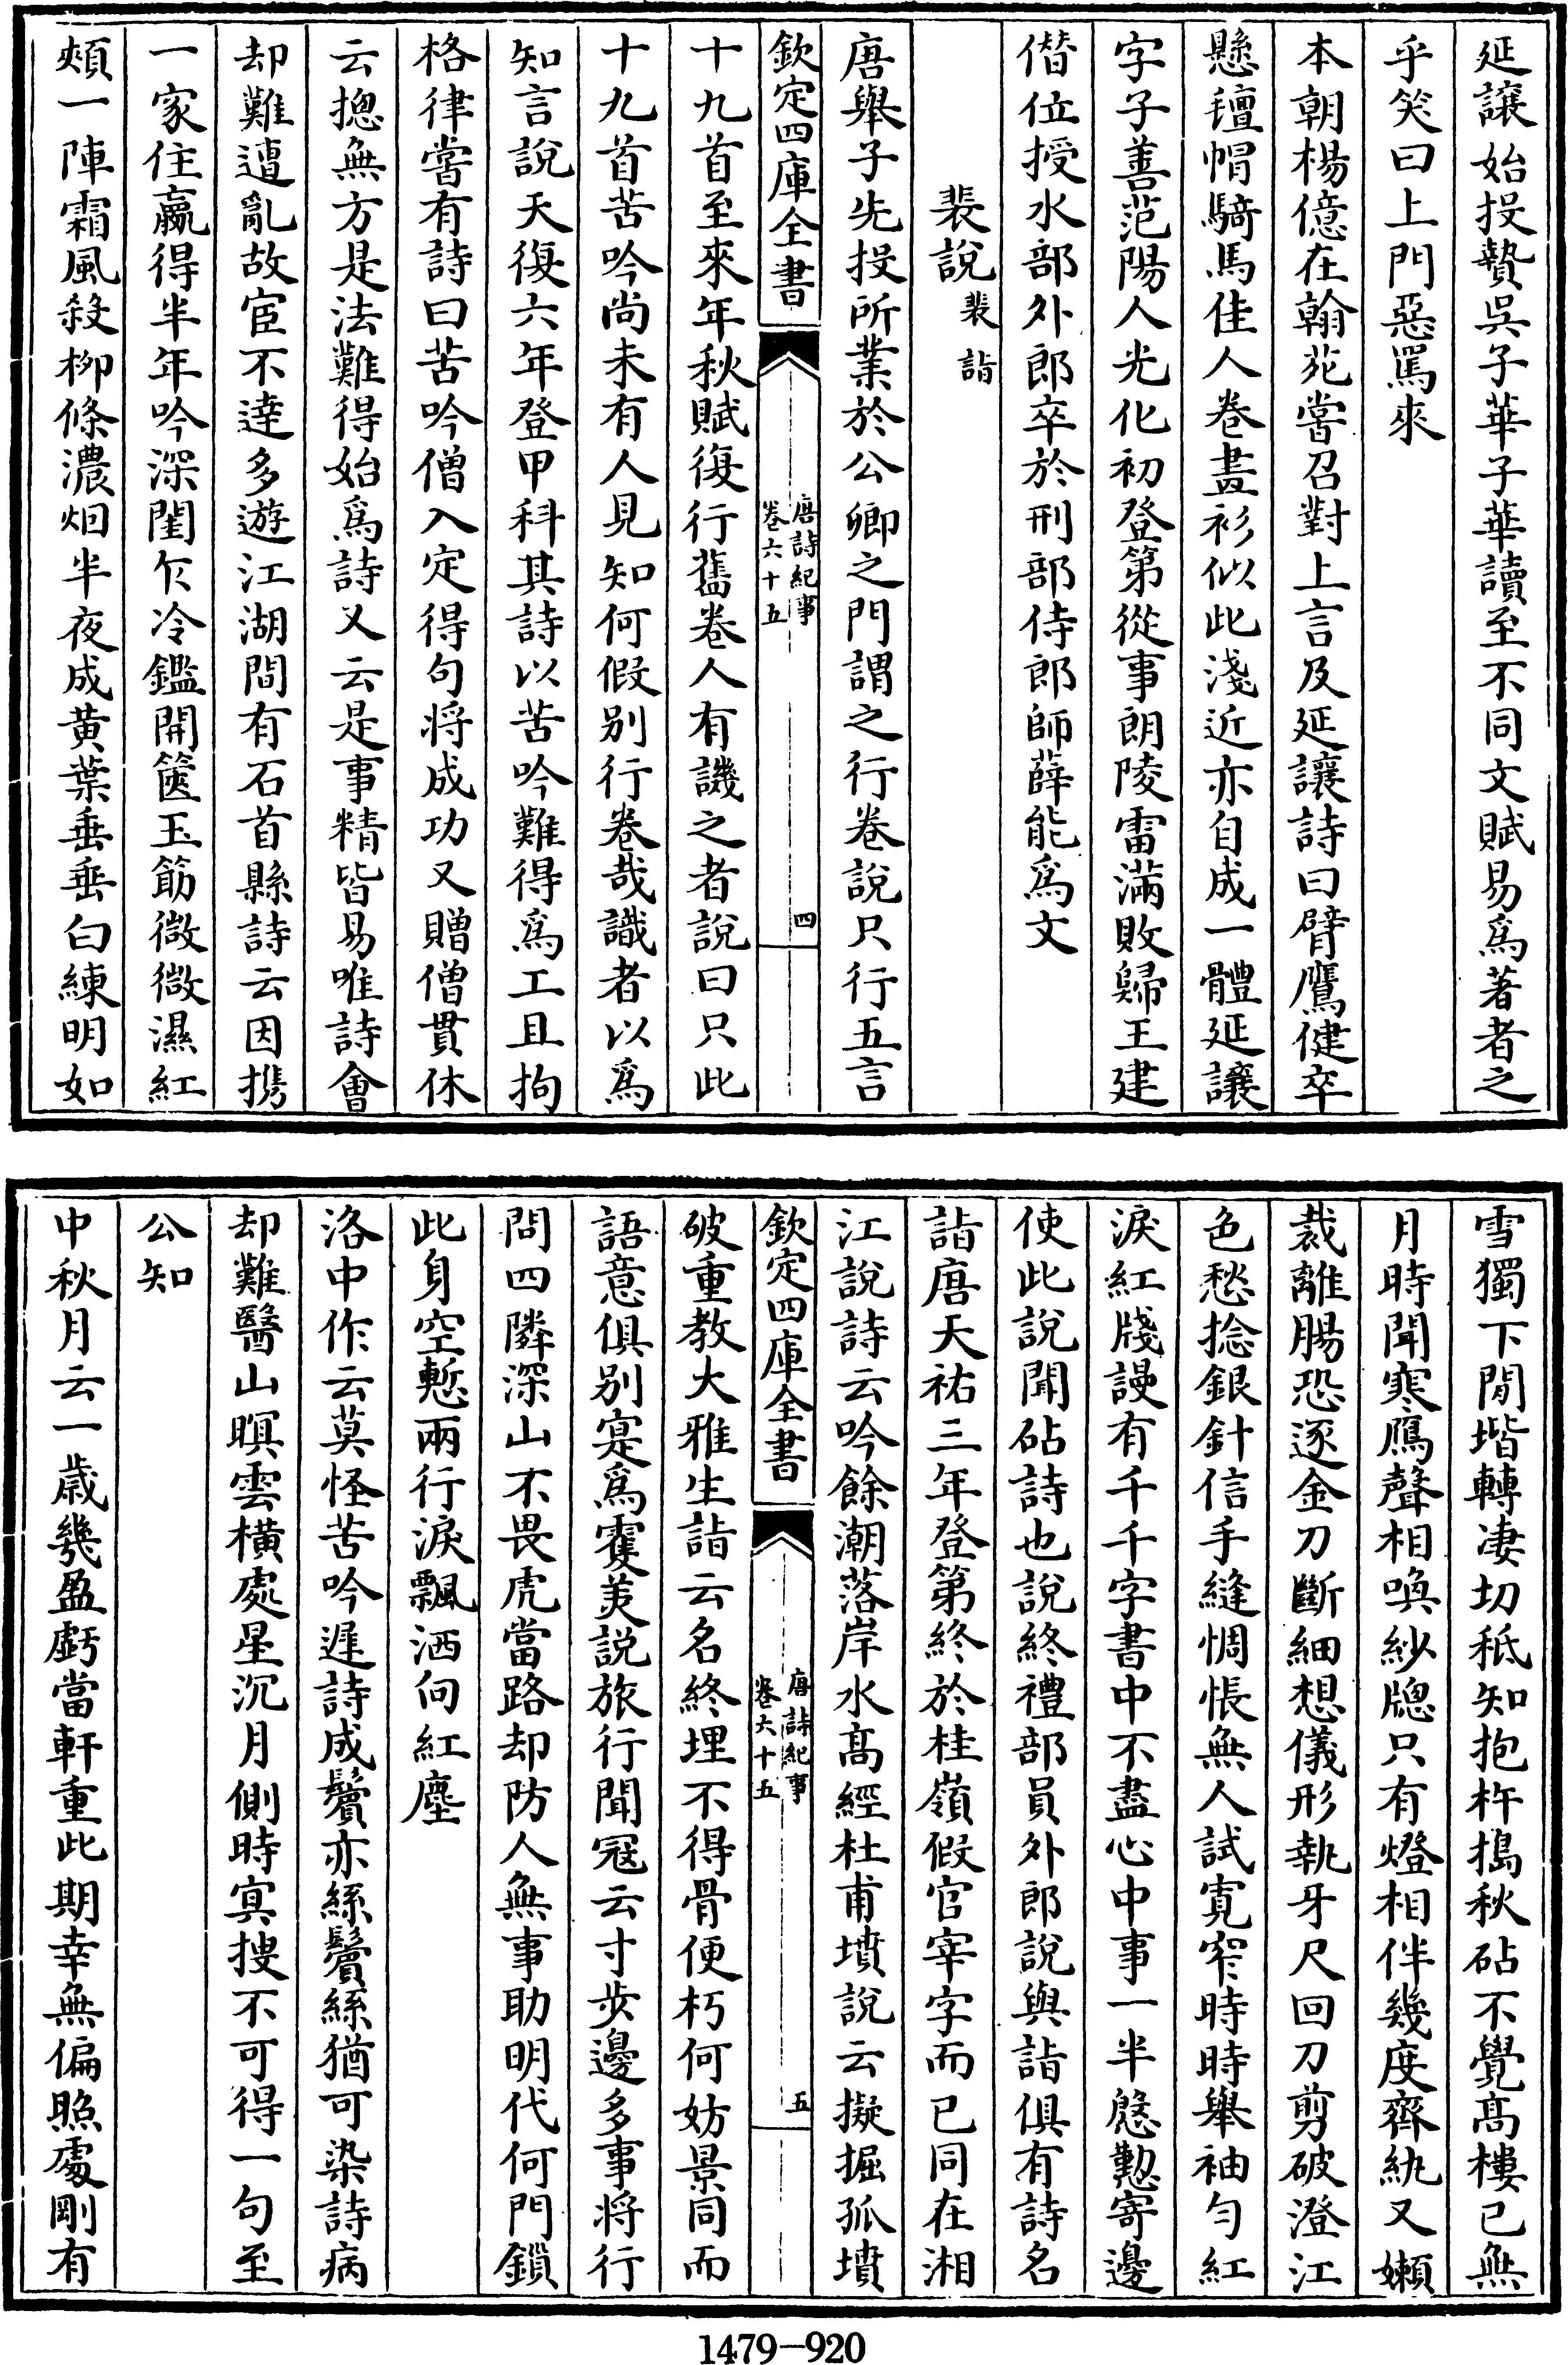 延讓始投贄吳子華子華讀至不同文賦易爲著者之
乎笑曰上門惡罵來
本朝楊億在翰苑嘗召對上言及延讓詩曰臂鷹健卒
懸氊帽騎馬佳人卷畫衫似此淺近亦自成一體延讓
字子善范陽人光化初登第從事朗陵雷滿敗歸王建
僭位授水部外郎卒於刑部侍郎師薛能爲文
裴說裴諧
唐舉子先投所業於公卿之門謂之行卷說只行五言
欽定四庫全書
唐詩紀事
卷六十五
四
十九首至來年秋賦復行舊卷人有譏之者說曰只此
十九首苦吟尚未有人見知何假别行卷哉識者以爲
知言說天復六年登甲科其詩以苦吟難得爲工且拘
格律嘗有詩曰苦吟僧入定得句将成功又贈僧貫休
云揔無方是法難得始爲詩又云是事精皆易唯詩會
却難遭亂故宦不達多遊江湖間有石首縣詩云因携
一家住贏得半年吟深閨乍冷鑑開篋玉筯微微濕紅
頰一陣霜風殺柳條濃烟半夜成黄葉垂垂白練明如
雪獨下閒堦轉凄切秖知抱杵搗秋砧不覺髙樓已無
月時聞寒鴈聲相喚紗牕只有燈相伴幾度齊紈又嬾
裁離腸恐逐金刀斷細想儀形執牙尺回刀剪破澄江
色愁捻銀針信手縫惆悵無人試寛窄時時舉袖勻紅
淚紅牋謾有千千字書中不盡心中事一半慇懃寄邊
使此說聞砧詩也說終禮部員外郎說與諧俱有詩名
諧唐天祐三年登第終於桂嶺假官宰字而已同在湘
江說詩云吟餘潮落岸水髙經杜甫墳說云擬掘孤墳
欽定四庫全書
唐詩紀事
卷六十五
五
破重教大雅生諧云名終埋不得骨便朽何妨景同而
語意俱别寔爲䨥美説旅行聞冦云寸步邊多事将行
問四隣深山不畏虎當路却防人無事助明代何門鎖
此身空慙兩行淚飄洒向紅塵
洛中作云莫怪苦吟遲詩成鬢亦絲鬢絲猶可染詩病
却難醫山暝雲横處星沉月側時冥搜不可得一句至
公知
中秋月云一歳幾盈虧當軒重此期幸無偏照處剛有
1479—920